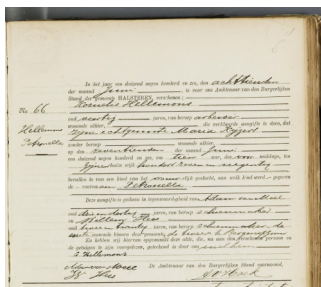 In het jaar een duizend negen honderd en zes, den achttienden
der maand Juni, is voor ons Ambtenaar van den Burgerlijken
Stand der gemeente HALSTEREN, verschenen:
No. 66
Cornelis Hellemons
oud veertig jaren, van beroep arbeider
wonende alhier, die verklaarde aangifte te doen, dat
Hellemons
Petronella
zijne echtgenoote Maria
zonder beroep wonende alhier
op den zeventienden der maand Juni
een duizend negen honderd en zes, om tien ure, des voor middags, ten
zijnen huize wijk honderd zeven en negentig
bevallen is van een kind van het vrouwelijk geslacht, aan welk kind werd gegeven
de voornaam van Petronella
Deze aangifte is gedaan in tegenwoordigheid van Adam van Meel
oud drie en dertig jaren, van beroep schoenmaker
en Willem Hees
oud twee en twintig jaren, van beroep schoenmaker, de
eerste wonende binnen deze gemeente, de tweede te Bergen op Zoom
En hebben wij hiervan opgemaakt deze akte, die, na aan den comparant en
de getuigen is voorgelezen, geteekend is door
C. Hellemons
De Ambtenaar van den Burgerlijken Stand voornoemd,
W. Hees